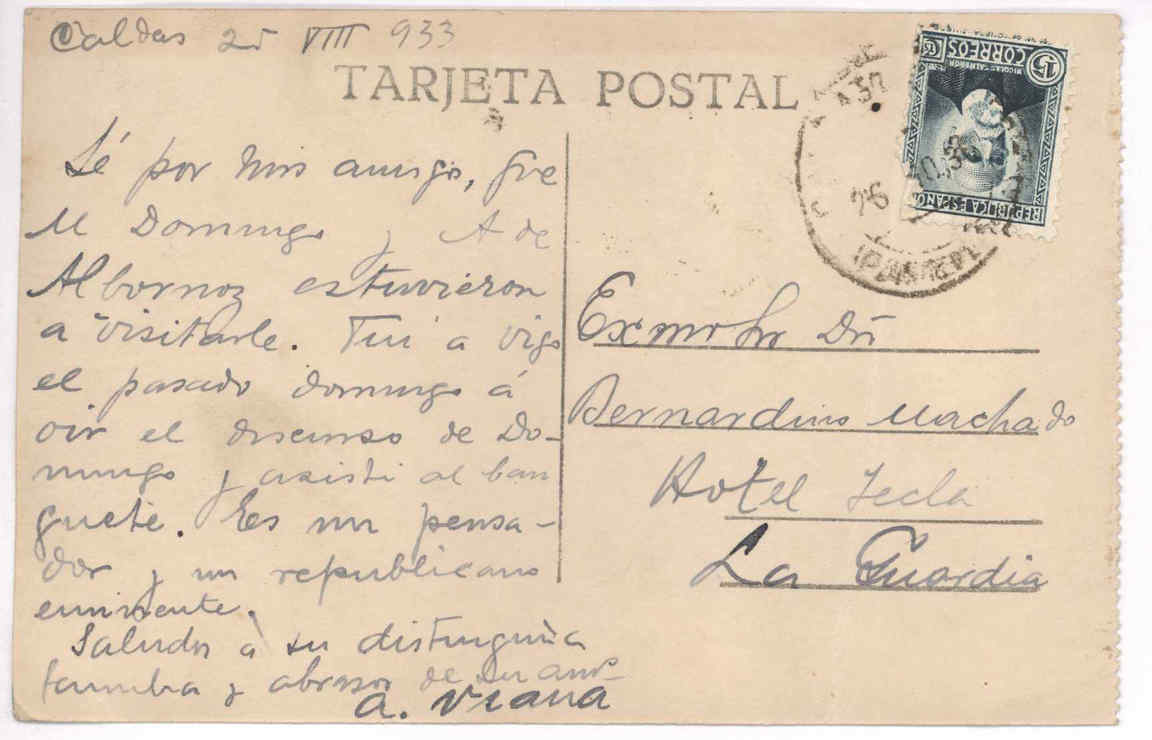 Caldas 25 VIII 933
TARJETA POSTAL
Sé por mis amigos, que
M Domingo y A de
Albornoz estuvieron
a visitarle. Fui a Vigo
el pasado domingo á
oir el discurso de Do-
mingo y asisti al ban
quete. Es un pensa-
dor y un republicano
eminente.
Saludos a su distinguida
familia y abrazos de su amº
a. Viana
15 CORREOS CTS
NICOLAS SALMERON
REPUBLICA ESPAÑOLA
26
Exmo Sr Dn
Bernardino Machado
Hotel Tecla
La Guardia